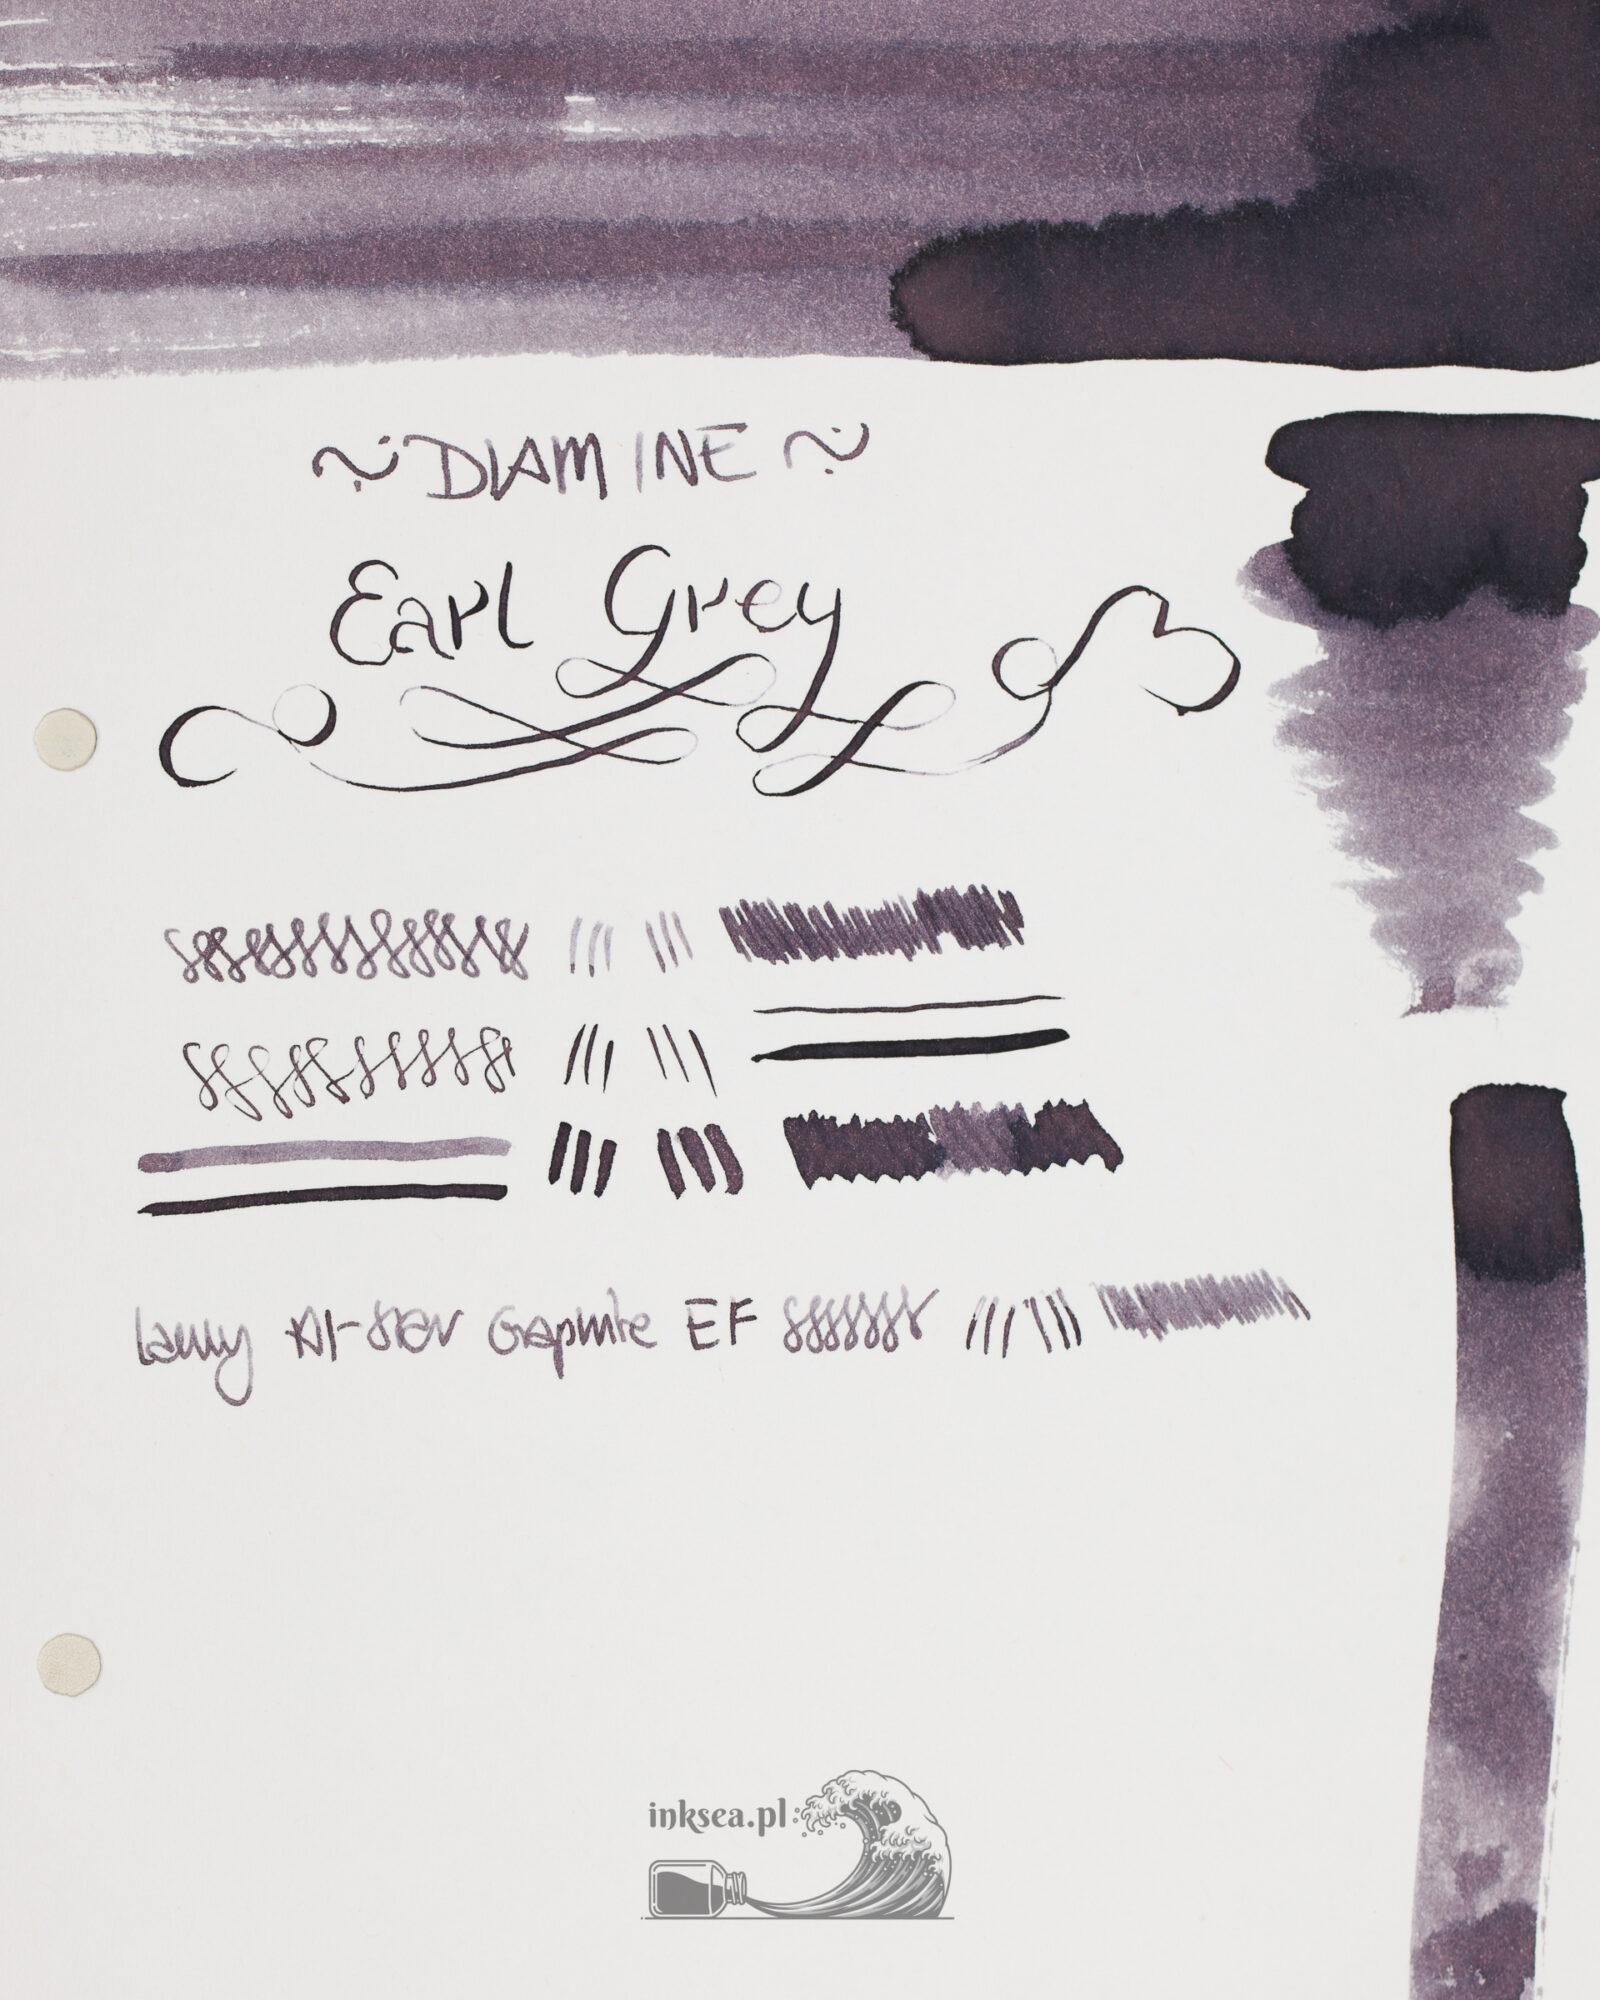 ~ DIAMINE ~
Earl Grey
Lamy Al-Star Graphite EF
inksea.pl